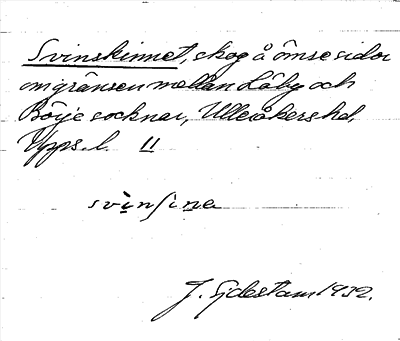 Svinskinnet, skog å ömse sidor
om gränsen mellan Läby och
Börje socknar, Ulleråkers hd,
Upps. l. 11
svinʃina
J. Sjdestam 1932.